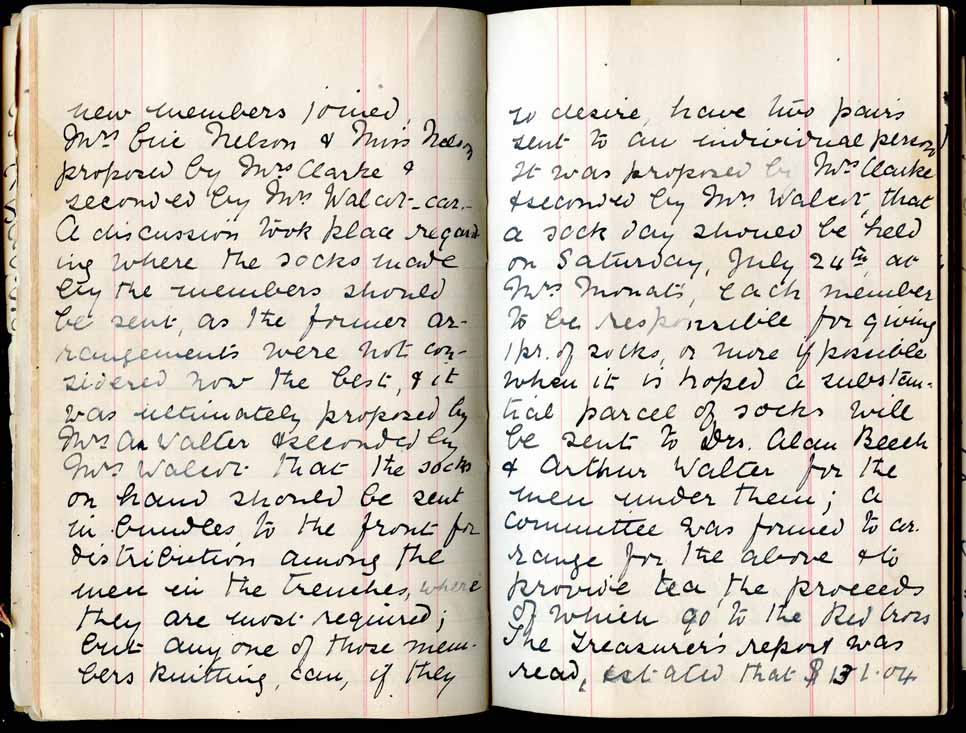 new members joined,
Mrs Eric Nelson & Miss Nelson
proposed by Mrs Clarke &
seconded by Mrs Walcot - car.-
A discussion took place regard-
ing where the socks made
by the members should
be sent, as the former ar-
rangements were not con-
sidered now the best, & it
was ultimately proposed by
Mrs Walter & seconded by
Mrs Walcot that the socks
on hand should be sent
in bundles, to the front for
distribution among the
men in the trenches, where
they are most required;
but any one of those mem-
bers knitting, can, if they
so desire, have two pairs
sent to an individual person
It was proposed by Mrs Clarke
& seconded by Mrs Walcot, that
a sock day should be held
on Saturday, July 24th, at
Mrs Monat's, each member
to be responsible for giving
1 pr. of socks, or more if possible
when it is hoped a substan-
tial parcel of socks will
be sent to Drs. Alan Beech
& Arthur Walter for the
men under them; a
committee was formed to ar-
range for the above & to
provide tea, the proceeds
of which go to the Red Cross
The Treasurer's report was
read, & stated that $131.04